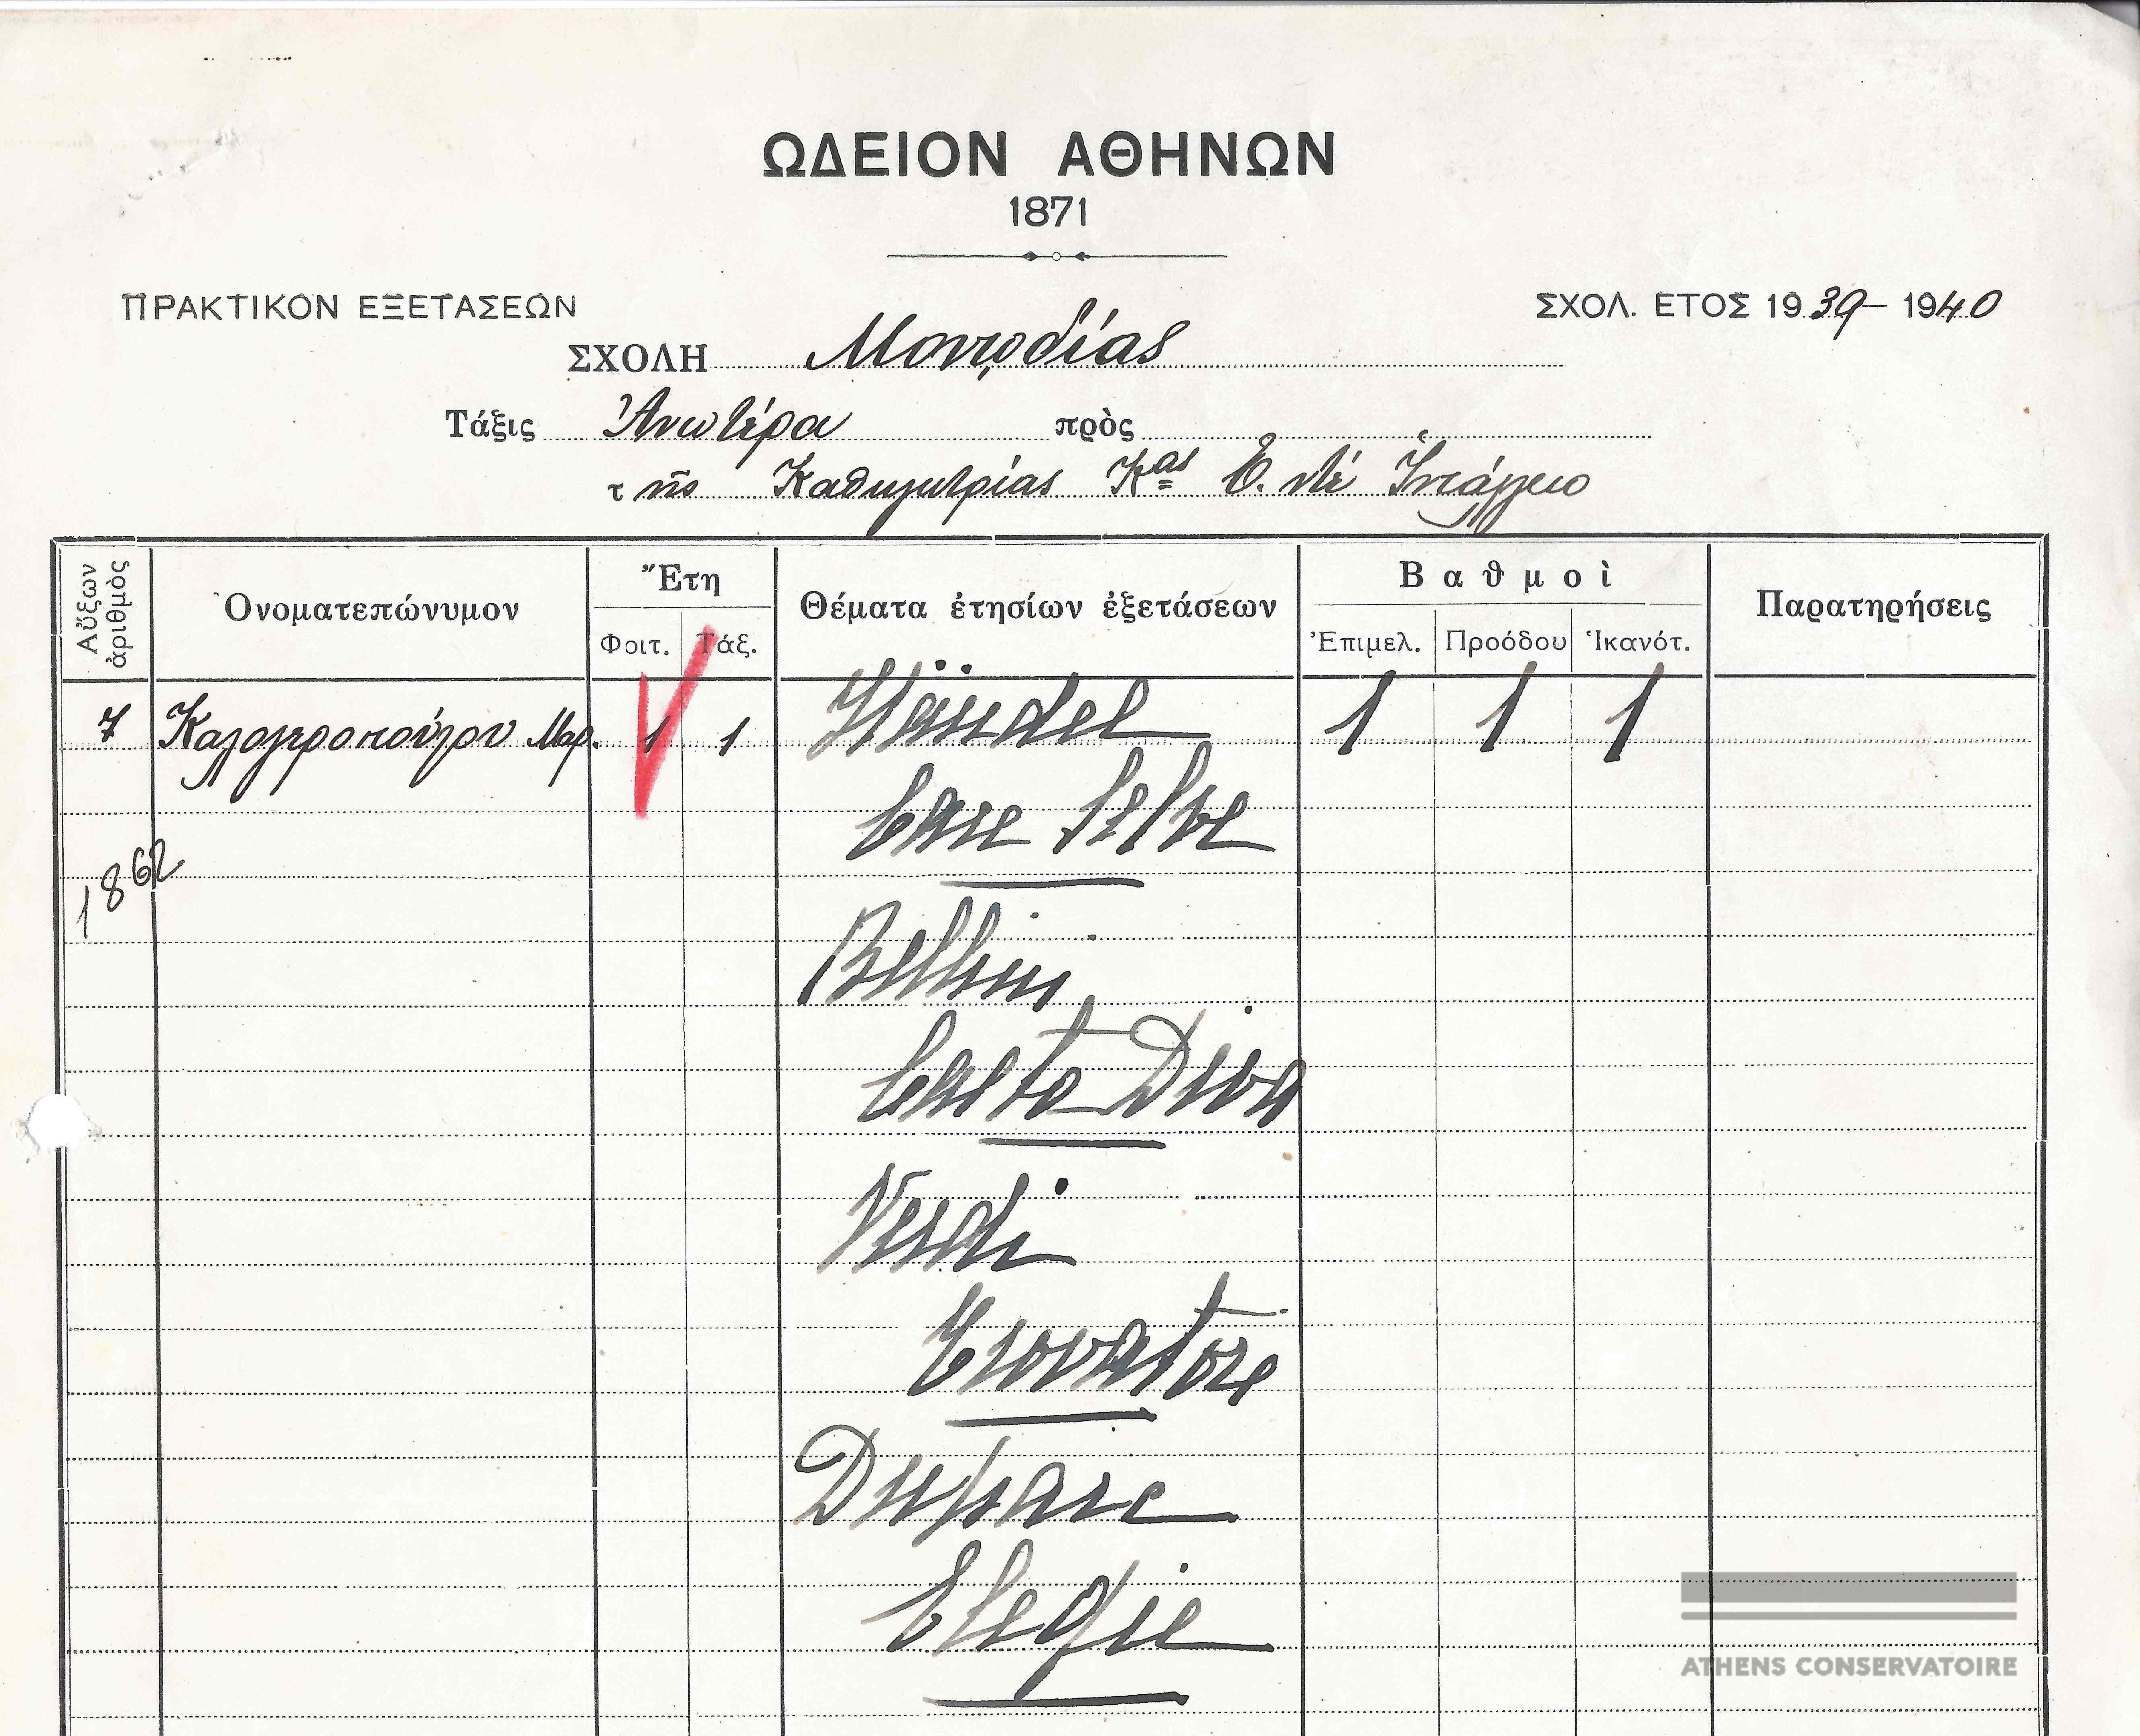 ΩΔΕΙΟΝ ΑΘΗΝΩΝ
1871
ΠΡΑΚΤΙΚΟΝ ΕΞΕΤΑΣΕΩΝ
ΣΧΟΛ. ΕΤΟΣ 1939–1940
ΣΧΟΛΗ Μονῳδίας
Τάξις Ἀνωτέρα πρὸς
τῆς Καθηγητρίας Κας Ἑ. ντὲ Ἰντάλγκο
Αὔξων ἀριθμὸς
Ὀνοματεπώνυμον
Ἔτη
Φοιτ. Τάξ.
Θέματα ἐτησίων ἐξετάσεων
Βαθμοὶ
Ἐπιμελ. Προόδου Ἱκανότ.
Παρατηρήσεις
7 Καλογεροπούλου Μαρ. 1 1 Händel 1 1 1
Care Selve
1862
Bellini
Casta Diva
Verdi
Trovatore
Duparc
Elegie
ATHENS CONSERVATOIRE